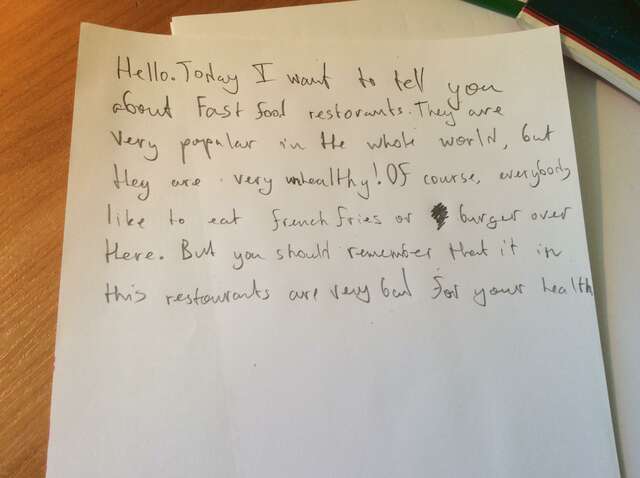 Hello. Today I want to tell you
about Fast food restorants. They are
very popular in the whole world, but
they are very unhealthy! Of course, everybody
like to eat french fries or burger over
there. But you should remember that it in
this restaurants are very bad for your health